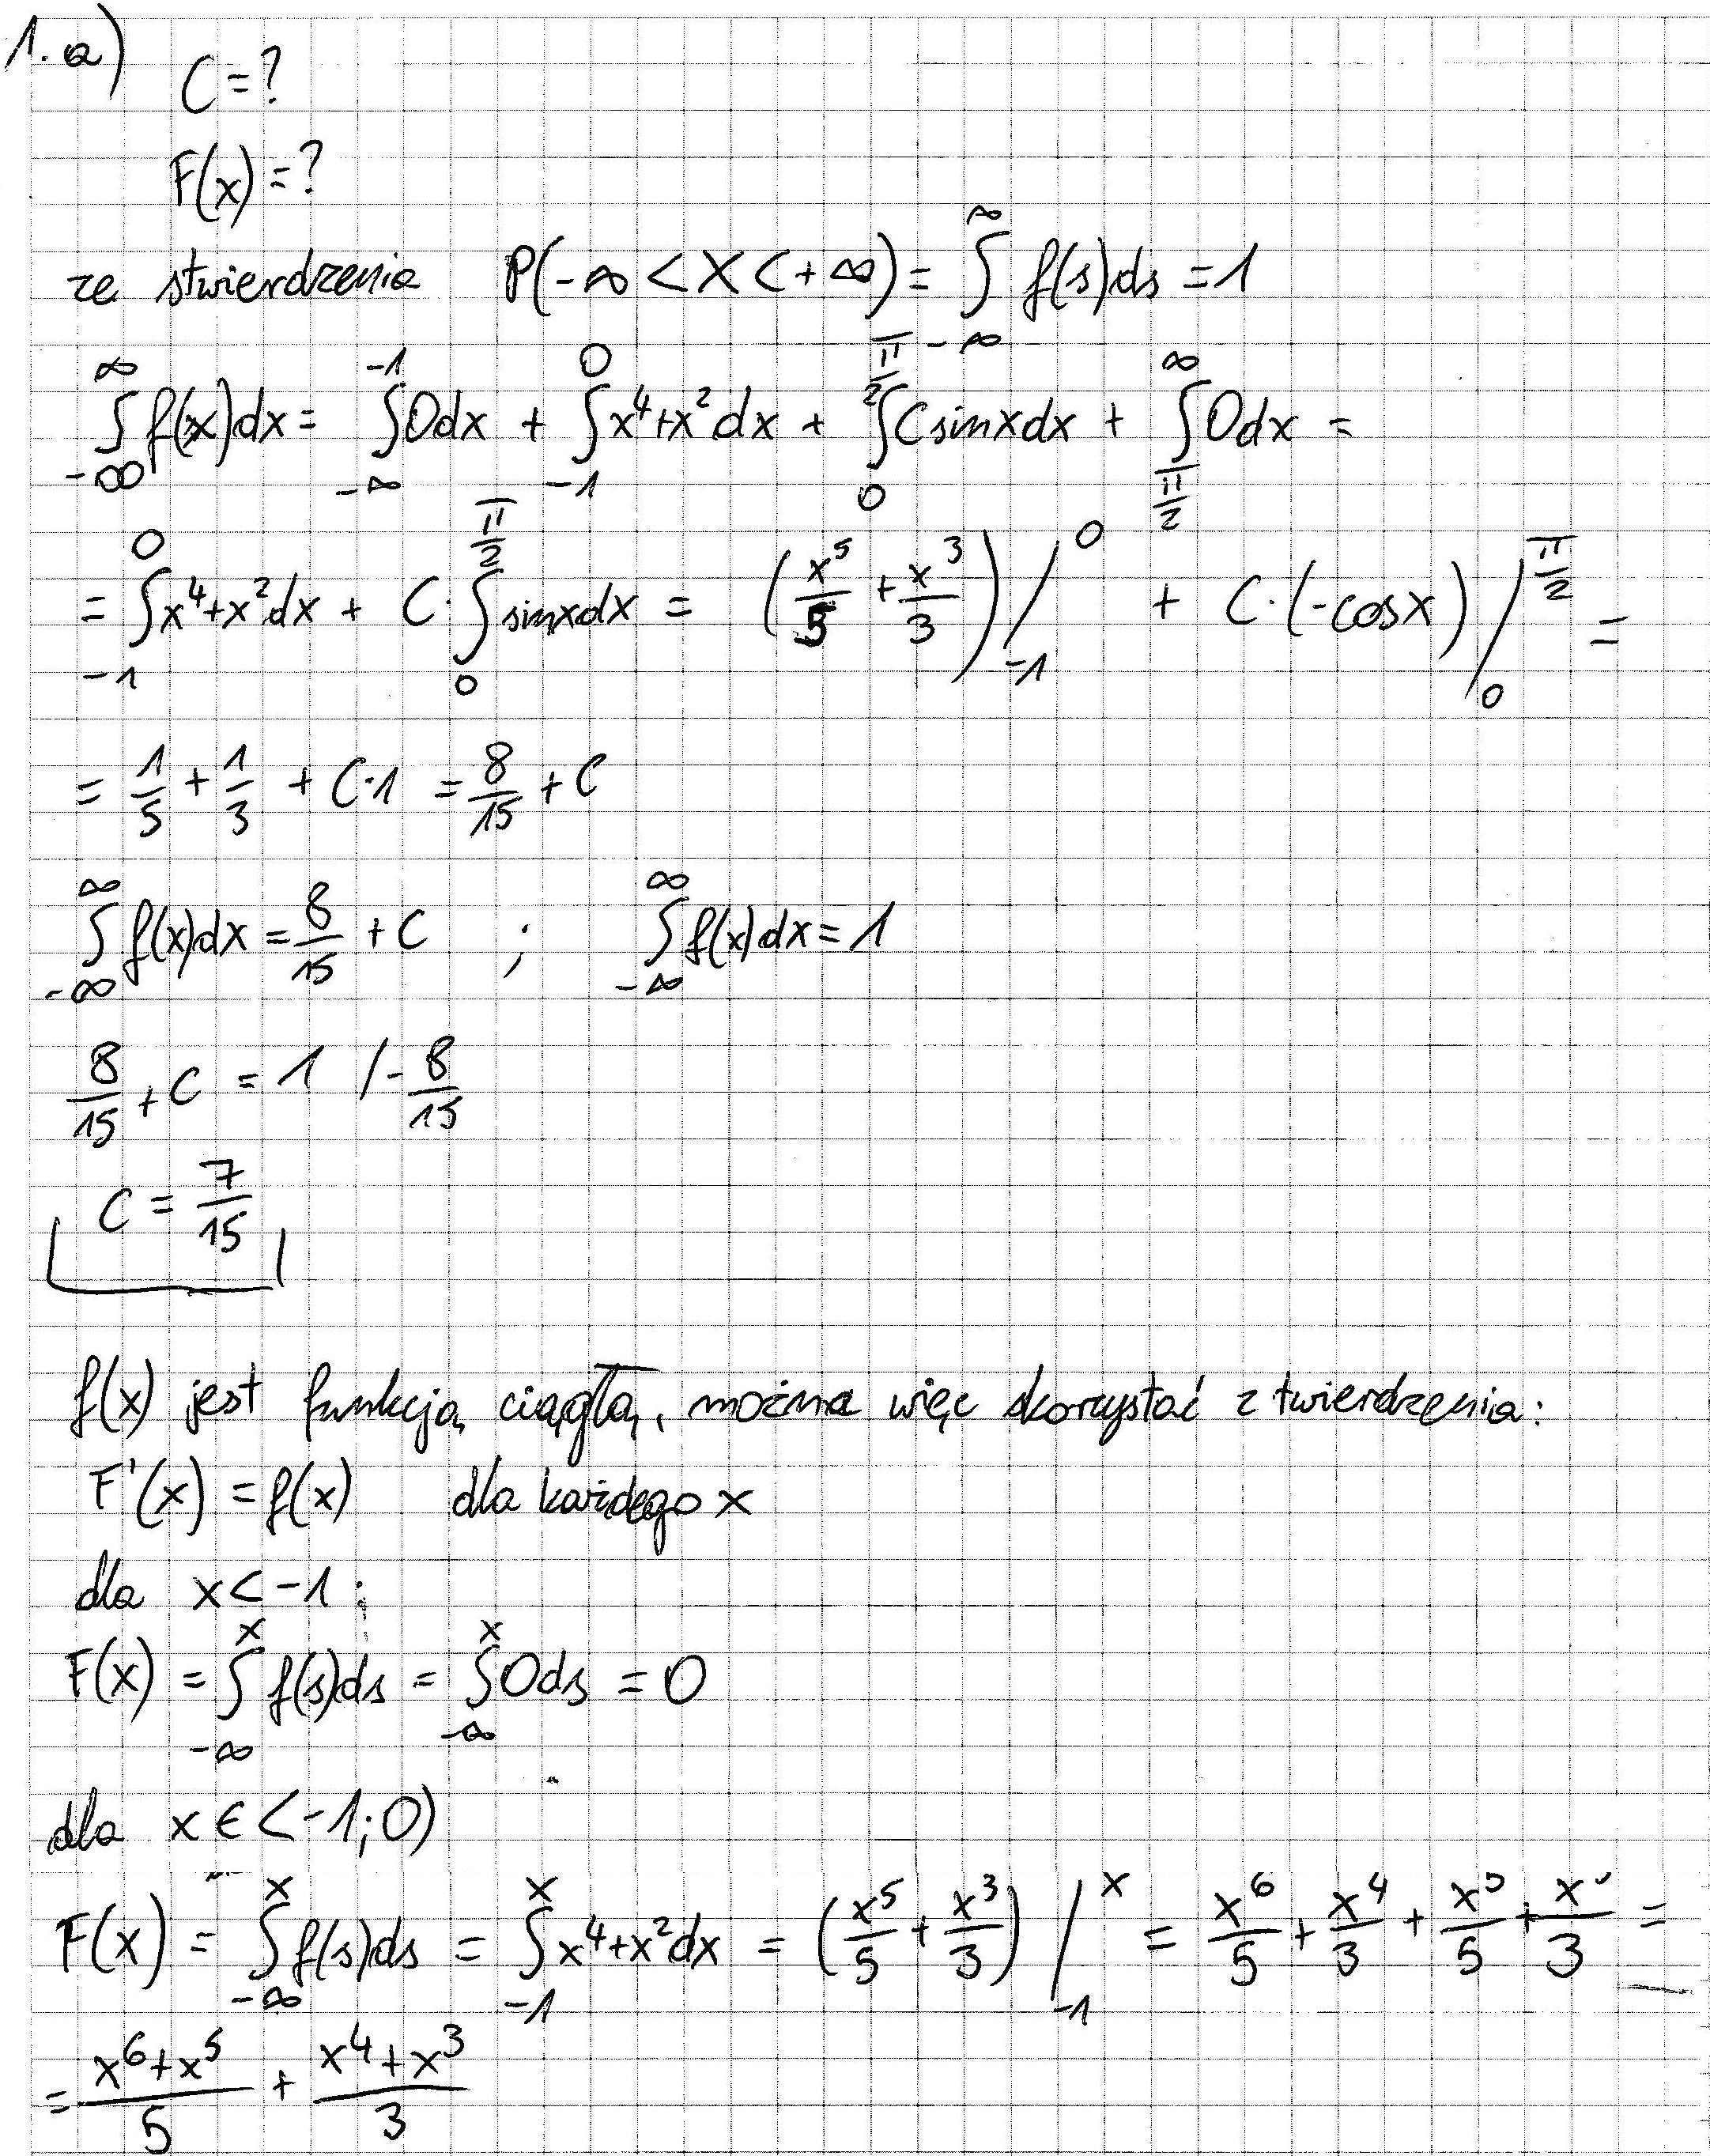 1. a)
C = ?
F(x) = ?
ze stwierdzenia P(-∞ < X < +∞) = ∫_{-∞}^{∞} f(s)ds = 1
∫_{-∞}^{∞} f(x)dx = ∫_{-∞}^{-1} 0dx + ∫_{-1}^{0} x⁴+x²dx + ∫_{0}^{π/2} C sinxdx + ∫_{π/2}^{∞} 0dx =
= ∫_{-1}^{0} x⁴+x²dx + C·∫_{0}^{π/2} sinxdx = (x⁵/5 + x³/3) /_{-1}^{0} + C·(-cosx) /_{0}^{π/2} =
= 1/5 + 1/3 + C·1 = 8/15 + C
∫_{-∞}^{∞} f(x)dx = 8/15 + C ; ∫_{-∞}^{∞} f(x)dx = 1
8/15 + C = 1 /- 8/15
C = 7/15
f(x) jest funkcją ciągłą, można więc skorzystać z twierdzenia:
F'(x) = f(x) dla każdego x
dla x < -1 :
F(x) = ∫_{-∞}^{x} f(s)ds = ∫_{-∞}^{x} 0ds = 0
dla x ∈ <-1; 0)
F(x) = ∫_{-∞}^{x} f(s)ds = ∫_{-1}^{x} x⁴+x²dx = (x⁵/5 + x³/3) /_{-1}^{x} = x⁶/5 + x⁴/3 + x⁵/5 + x³/3 =
= (x⁶+x⁵)/5 + (x⁴+x³)/3